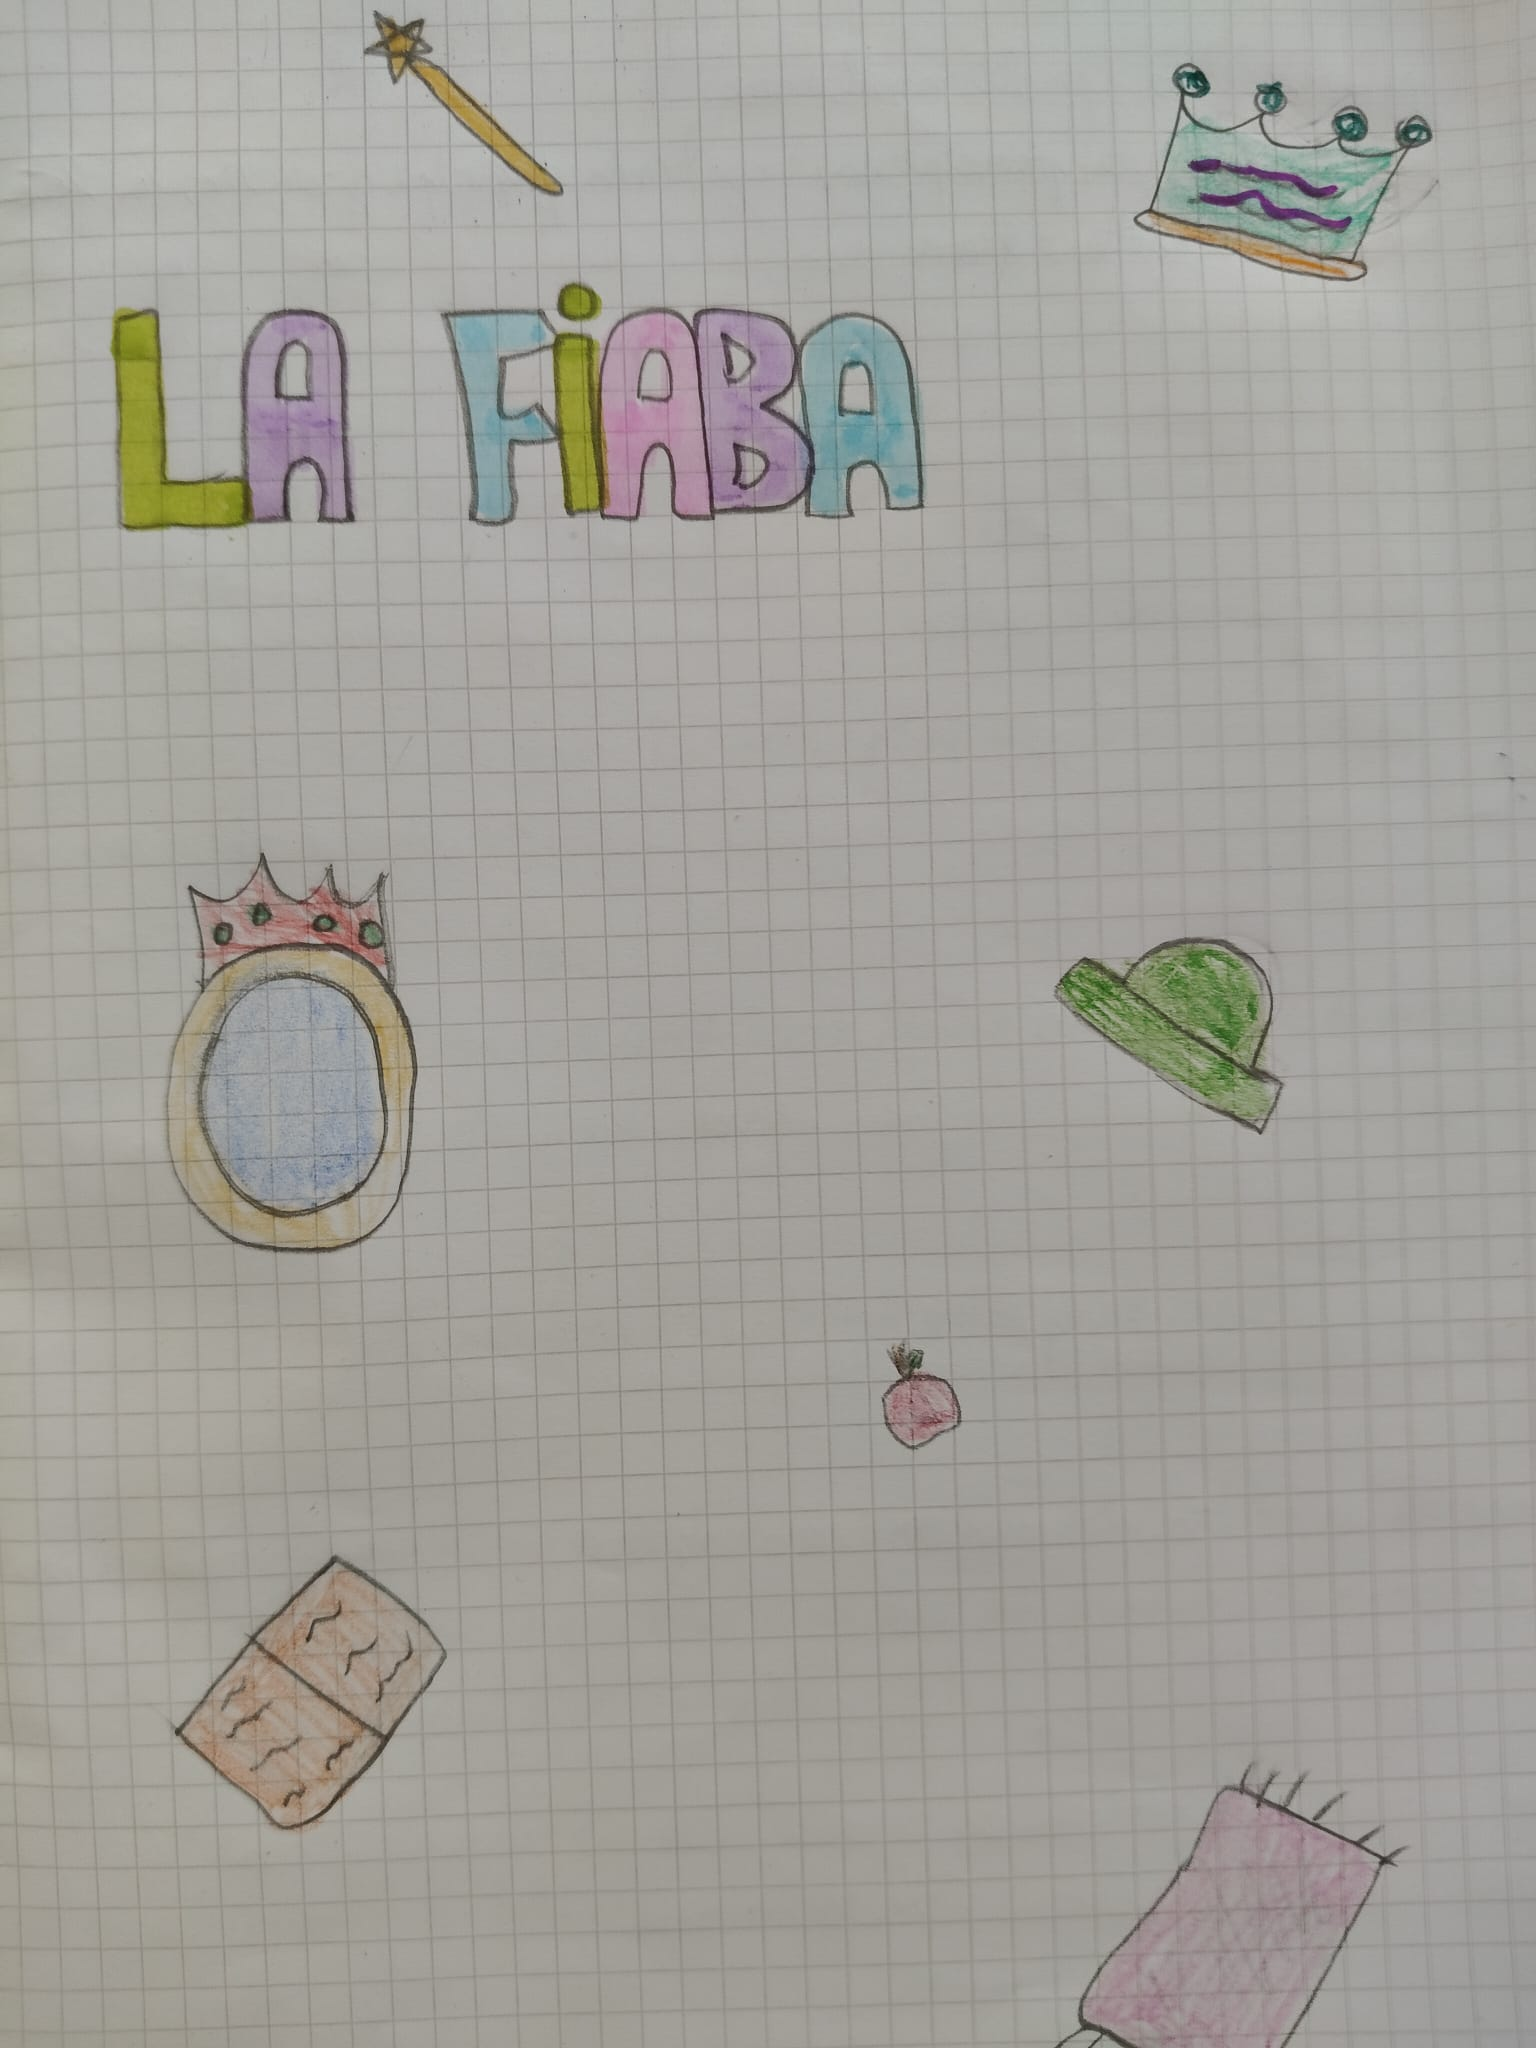 LA FiABA